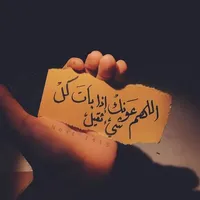 اللهم عونك إذا بات كل
شيء ثقيل